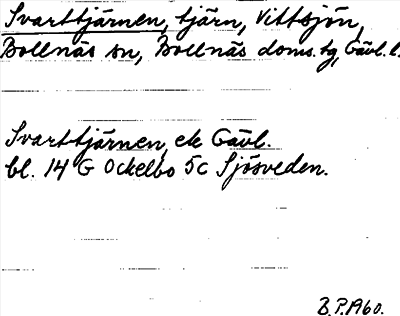 Svarttjärnen, tjärn, Vittsjön,
Bollnäs sn, Bollnäs doms. tg, Gävl. l.
Svarttjärnen, ek Gävl.
bl. 14 G Ockelbo 5c Sjösveden.
B.P. 1960.